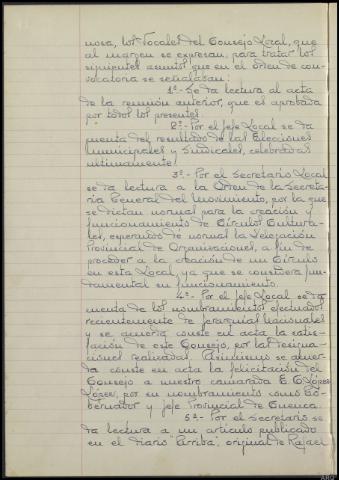 nosa, los Vocales del Consejo Local, que
al margen se expresan, para tratar los
siguientes asuntos que en el orden de con-
vocatoria se señalaban:
1º.- Se da lectura al acta
de la reunión anterior, que es aprobada
por todos los presentes.
2º.- Por el Jefe Local se da
cuenta del resultado de las Elecciones
Municipales y Sindicales, celebradas
ultimamente.
3º.- Por el Secretario Local
se da lectura a la Orden de la Secreta-
ría General del Movimiento, por la que
se dictan normas para la creación y
funcionamiento de Círculos Cultura-
les, esperando de usual la Delegación
Provincial de Organizaciones, a fin de
proceder a la creación de un Círculo
en esta Local, ya que se considera fun-
damental su funcionamiento.
4º.- Por el Jefe Local se da
cuenta de los nombramientos efectuados
recientemente de jerarquías Nacionales
y se acuerda conste en acta la satis-
facción de este Consejo, por las designa-
ciones realizadas. Asimismo se acuer-
da conste en acta la felicitación del
Consejo a nuestro camarada E. C. López
López, por su nombramiento como Go-
bernador y Jefe Provincial de Cuenca.
5º.- Por el Secretario se
da lectura a un artículo publicado
en el diario "Arriba", original de Rafael